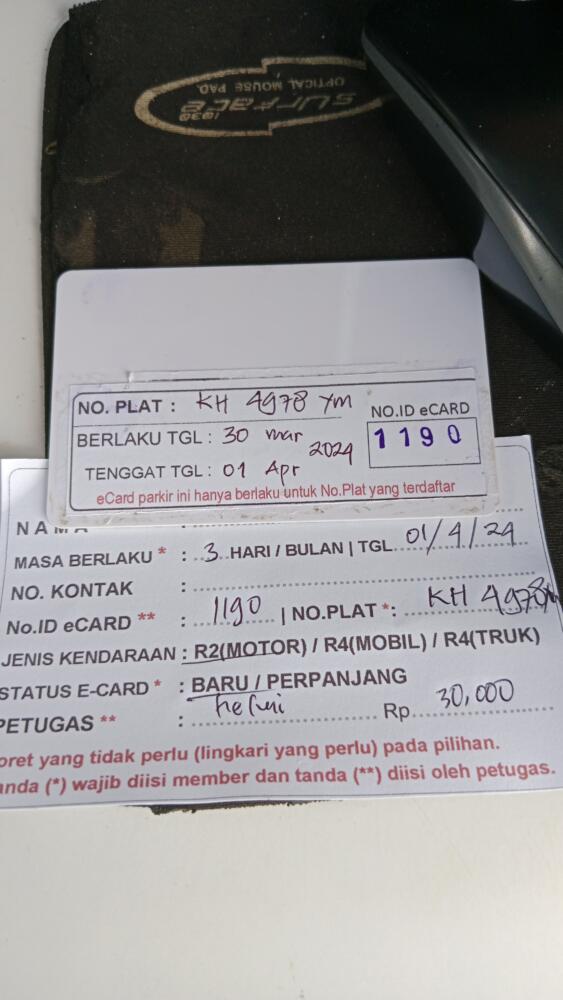 surface
1030
OPTICAL MOUSE PAD
NO. PLAT : KH 4978 YM
NO.ID eCARD
1190
BERLAKU TGL : 30 mar 2024
TENGGAT TGL : 01 Apr
eCard parkir ini hanya berlaku untuk No.Plat yang terdaftar
NAMA :
MASA BERLAKU * : 3 HARI / BULAN | TGL 01/4/24
NO. KONTAK :
No.ID eCARD ** : 1190 | NO.PLAT *: KH 4978
JENIS KENDARAAN : R2(MOTOR) / R4(MOBIL) / R4(TRUK)
STATUS E-CARD * : BARU / PERPANJANG
PETUGAS ** : Rp. 30,000
oret yang tidak perlu (lingkari yang perlu) pada pilihan.
anda (*) wajib diisi member dan tanda (**) diisi oleh petugas.